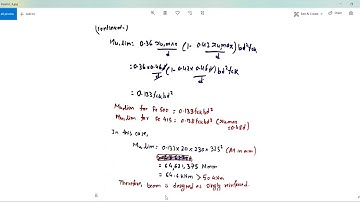 (continued..)
Mu,lim = 0.36 xu,max/d (1 - 0.42 xu,max/d) bd²fck
= 0.36 x 0.46d/d (1 - 0.42 x 0.46d/d) bd²fck
= 0.133 fck bd²
Mu,lim for Fe 500 = 0.133 fck bd²
Mu,lim for Fe 415 = 0.138 fck bd² (xu,max
= 0.48d)
In this case,
Mu,lim = 0.133 x 20 x 230 x 325² (All in mm)
= 64,621,375 Nmm
= 64.6 kNm > 50 kNm
Therefore beam is designed as singly reinforced.